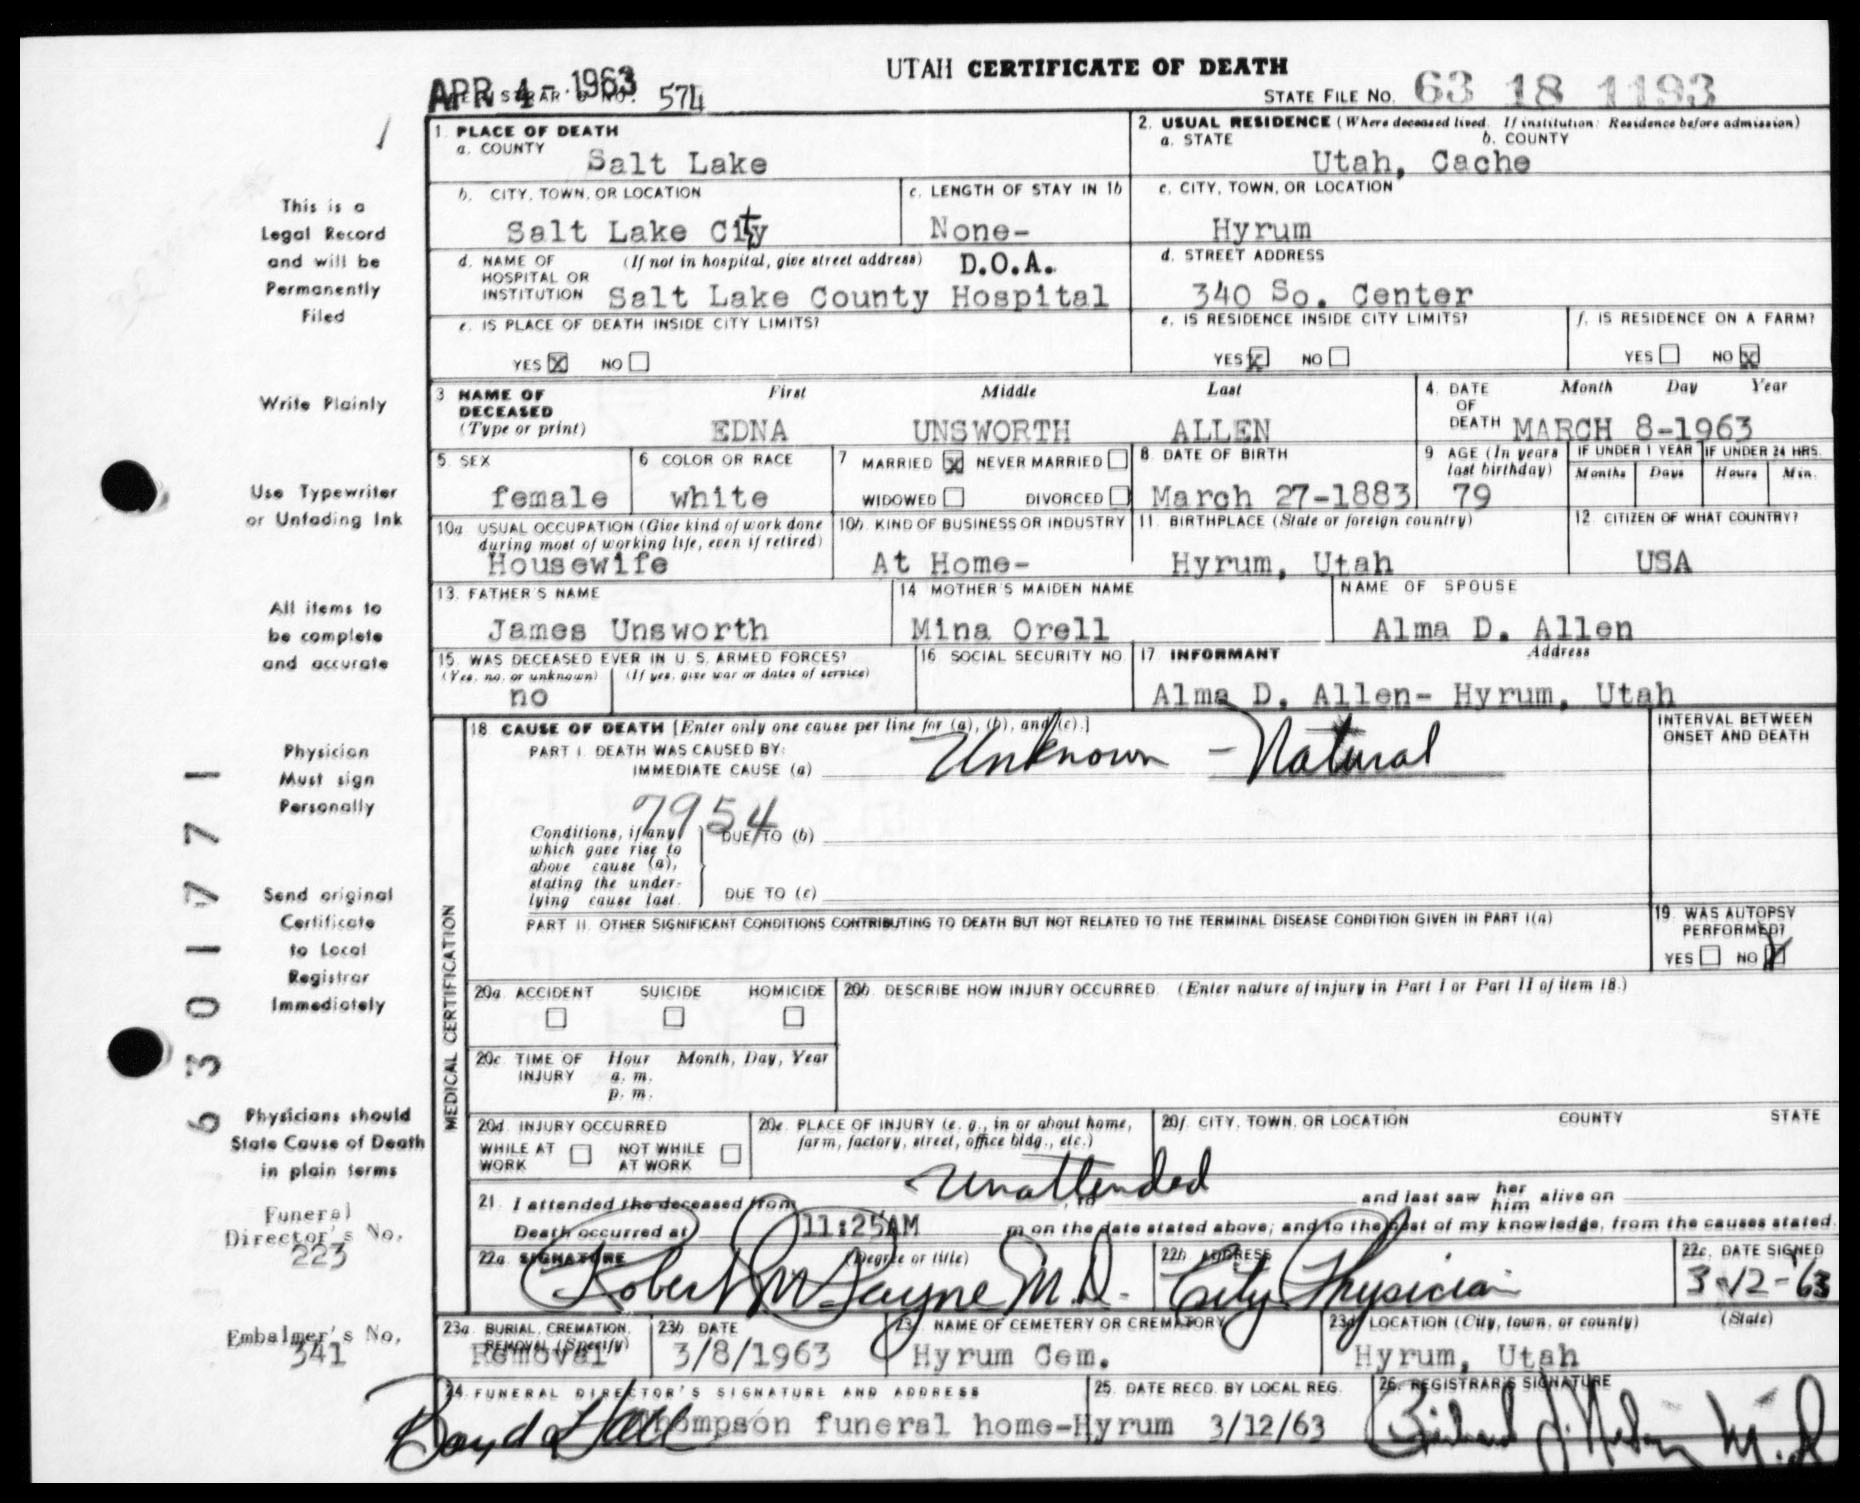 UTAH CERTIFICATE OF DEATH
APR 4- 1963
REGISTRAR'S NO. 574
STATE FILE NO. 63 18 1193
1. PLACE OF DEATH
a. COUNTY
Salt Lake
2. USUAL RESIDENCE (Where deceased lived. If institution: Residence before admission)
a. STATE b. COUNTY
Utah, Cache
b. CITY, TOWN, OR LOCATION
Salt Lake City
c. LENGTH OF STAY IN 1b
None-
c. CITY, TOWN, OR LOCATION
Hyrum
d. NAME OF HOSPITAL OR INSTITUTION (If not in hospital, give street address)
D.O.A.
Salt Lake County Hospital
d. STREET ADDRESS
340 So. Center
e. IS PLACE OF DEATH INSIDE CITY LIMITS?
YES X NO
e. IS RESIDENCE INSIDE CITY LIMITS?
YES X NO
f. IS RESIDENCE ON A FARM?
YES NO X
3 NAME OF DECEASED (Type or print)
First Middle Last
EDNA UNSWORTH ALLEN
4. DATE OF DEATH
Month Day Year
MARCH 8-1963
5. SEX
female
6 COLOR OR RACE
white
7 MARRIED X NEVER MARRIED
WIDOWED DIVORCED
8. DATE OF BIRTH
March 27-1883
9 AGE (In years last birthday)
79
IF UNDER 1 YEAR
Months Days
IF UNDER 24 HRS.
Hours Min.
10a. USUAL OCCUPATION (Give kind of work done during most of working life, even if retired)
Housewife
10b. KIND OF BUSINESS OR INDUSTRY
At Home-
11. BIRTHPLACE (State or foreign country)
Hyrum, Utah
12. CITIZEN OF WHAT COUNTRY?
USA
13. FATHER'S NAME
James Unsworth
14 MOTHER'S MAIDEN NAME
Mina Orell
NAME OF SPOUSE
Alma D. Allen
15. WAS DECEASED EVER IN U. S. ARMED FORCES?
(Yes, no, or unknown) (If yes, give war or dates of service)
no
16 SOCIAL SECURITY NO.
17 INFORMANT Address
Alma D. Allen- Hyrum, Utah
MEDICAL CERTIFICATION
18. CAUSE OF DEATH [Enter only one cause per line for (a), (b), and (c).]
PART I. DEATH WAS CAUSED BY:
IMMEDIATE CAUSE (a) Unknown - Natural
INTERVAL BETWEEN ONSET AND DEATH
7954
Conditions, if any, which gave rise to above cause (a), stating the underlying cause last.
DUE TO (b)
DUE TO (c)
PART II. OTHER SIGNIFICANT CONDITIONS CONTRIBUTING TO DEATH BUT NOT RELATED TO THE TERMINAL DISEASE CONDITION GIVEN IN PART I(a)
19. WAS AUTOPSY PERFORMED?
YES NO X
20a. ACCIDENT SUICIDE HOMICIDE
20b. DESCRIBE HOW INJURY OCCURRED. (Enter nature of injury in Part I or Part II of item 18.)
20c. TIME OF INJURY
Hour Month, Day, Year
a. m.
p. m.
20d. INJURY OCCURRED
WHILE AT WORK NOT WHILE AT WORK
20e. PLACE OF INJURY (e. g., in or about home, farm, factory, street, office bldg., etc.)
20f. CITY, TOWN, OR LOCATION COUNTY STATE
21. I attended the deceased from Unattended, to and last saw her him alive on
Death occurred at 11:25AM m on the date stated above; and to the best of my knowledge, from the causes stated.
22a. SIGNATURE (Degree or title)
Robert M Dayne M.D.
22b. ADDRESS
City Physician
22c. DATE SIGNED
3-12-'63
23a. BURIAL, CREMATION, REMOVAL (Specify)
Removal
23b DATE
3/8/1963
23c. NAME OF CEMETERY OR CREMATORY
Hyrum Cem.
23d. LOCATION (City, town, or county) (State)
Hyrum, Utah
24. FUNERAL DIRECTOR'S SIGNATURE AND ADDRESS
Boyd Hall Thompson funeral home-Hyrum
25. DATE RECD. BY LOCAL REG.
3/12/63
26. REGISTRAR'S SIGNATURE
M.D
This is a
Legal Record
and will be
Permanently
Filed
Write Plainly
Use Typewriter
or Unfading Ink
All items to
be complete
and accurate
Physician
Must sign
Personally
Send original
Certificate
to Local
Registrar
Immediately
Physicians should
State Cause of Death
in plain terms
Funeral
Director's No.
223
Embalmer's No.
341
6301771